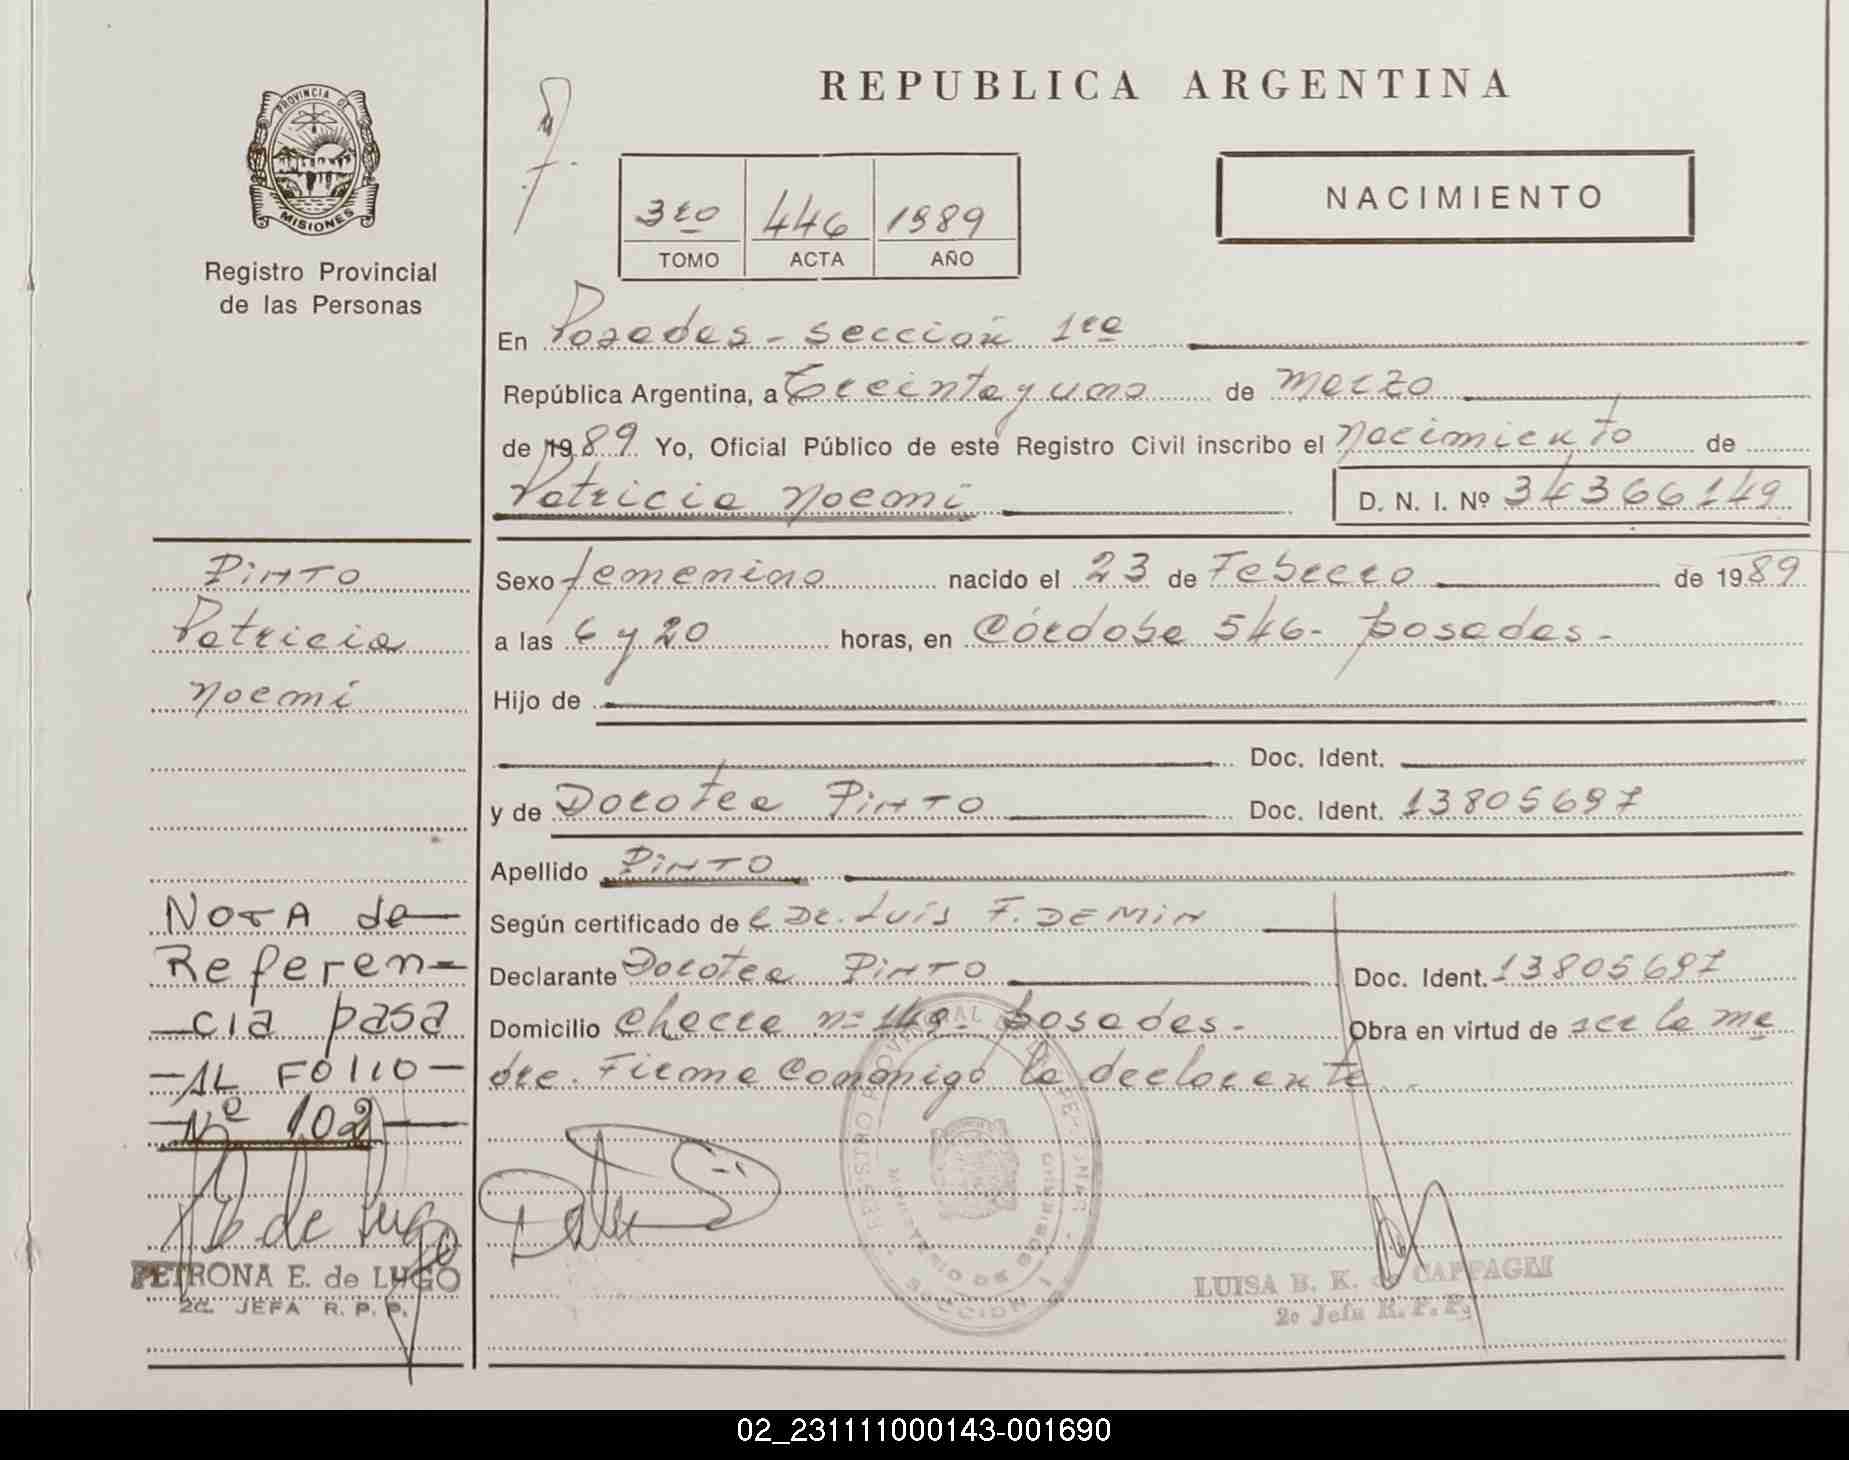 PROVINCIA DE
MISIONES
Registro Provincial
de las Personas
REPUBLICA ARGENTINA
NACIMIENTO
3ro 446 1989
TOMO ACTA AÑO
En Posadas - sección 1ra
República Argentina, a Treinta y uno de marzo
de 1989 Yo, Oficial Público de este Registro Civil inscribo el nacimiento de
Patricia Noemi D. N. I. Nº 34366149
Sexo femenino nacido el 23 de Febrero de 1989
a las 6 y 20 horas, en Córdoba 546- posadas-
Hijo de
Doc. Ident.
y de Dorotea PiNTO Doc. Ident. 13805697
Apellido PiNTO
Según certificado de Dr. Luis F. DEMIN
Declarante Dorotea PiNTO Doc. Ident. 13805697
Domicilio nº 149- posadas- Obra en virtud de ser la ma
dre. Firma Conmigo la declarante
PiNTO
Patricia
Noemi
NOTA de
Referen=
cia pasa
-AL FOLIO-
-Nº 102-
PETRONA E. de LUGO
2a. JEFA R. P. P.
REGISTRO PROVINCIAL DE LAS PERSONAS
MINISTERIO DE GOBIERNO
SECCION 1
LUISA B. K. de
2º Jefa R. P. P.
02_231111000143-001690